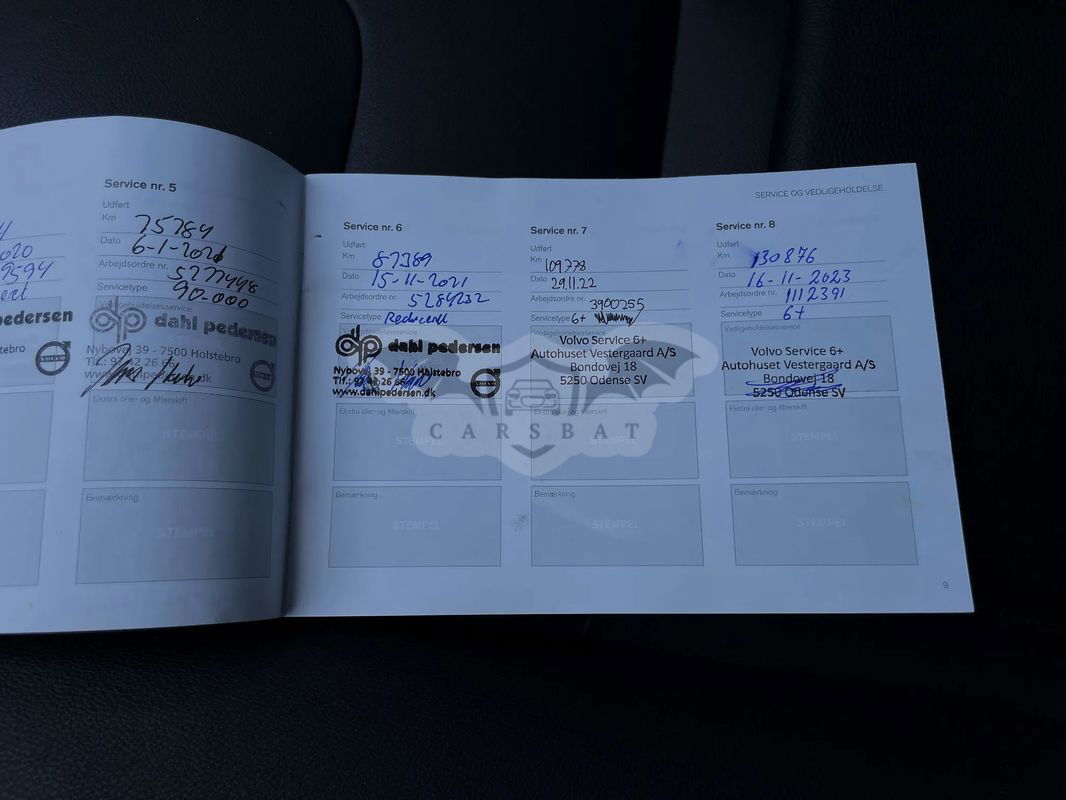 Service nr. 5
Udført
Km 75784
Dato 6-1-2021
Arbejdsordre nr. 5277448
Servicetype 90-000
Vedligeholdelsesservice
dp dahl pedersen
Nybovej 39 - 7500 Holstebro
VOLVO
Ekstra olie- og filterskift
STEMPEL
Bemærkning
STEMPEL
SERVICE OG VEDLIGEHOLDELSE
Service nr. 6
Udført
Km 87389
Dato 15-11-2021
Arbejdsordre nr. 5284232
Servicetype Reduceret
dp dahl pedersen
Nybovej 39 - 7500 Holstebro
Tlf.: 97 42 26 66
www.dahlpedersen.dk
VOLVO
Ekstra olie- og filterskift
STEMPEL
Bemærkning
STEMPEL
Service nr. 7
Udført
Km 109778
Dato 29.11.22
Arbejdsordre nr. 3900255
Servicetype 6+
Vedligeholdelsesservice
Volvo Service 6+
Autohuset Vestergaard A/S
Bondovej 18
5250 Odense SV
Ekstra olie- og filterskift
STEMPEL
Bemærkning
STEMPEL
Service nr. 8
Udført
Km 130876
Dato 16-11-2023
Arbejdsordre nr. 1112391
Servicetype 6+
Vedligeholdelsesservice
Volvo Service 6+
Autohuset Vestergaard A/S
Bondovej 18
5250 Odense SV
Ekstra olie- og filterskift
STEMPEL
Bemærkning
STEMPEL
CARSBAT
9